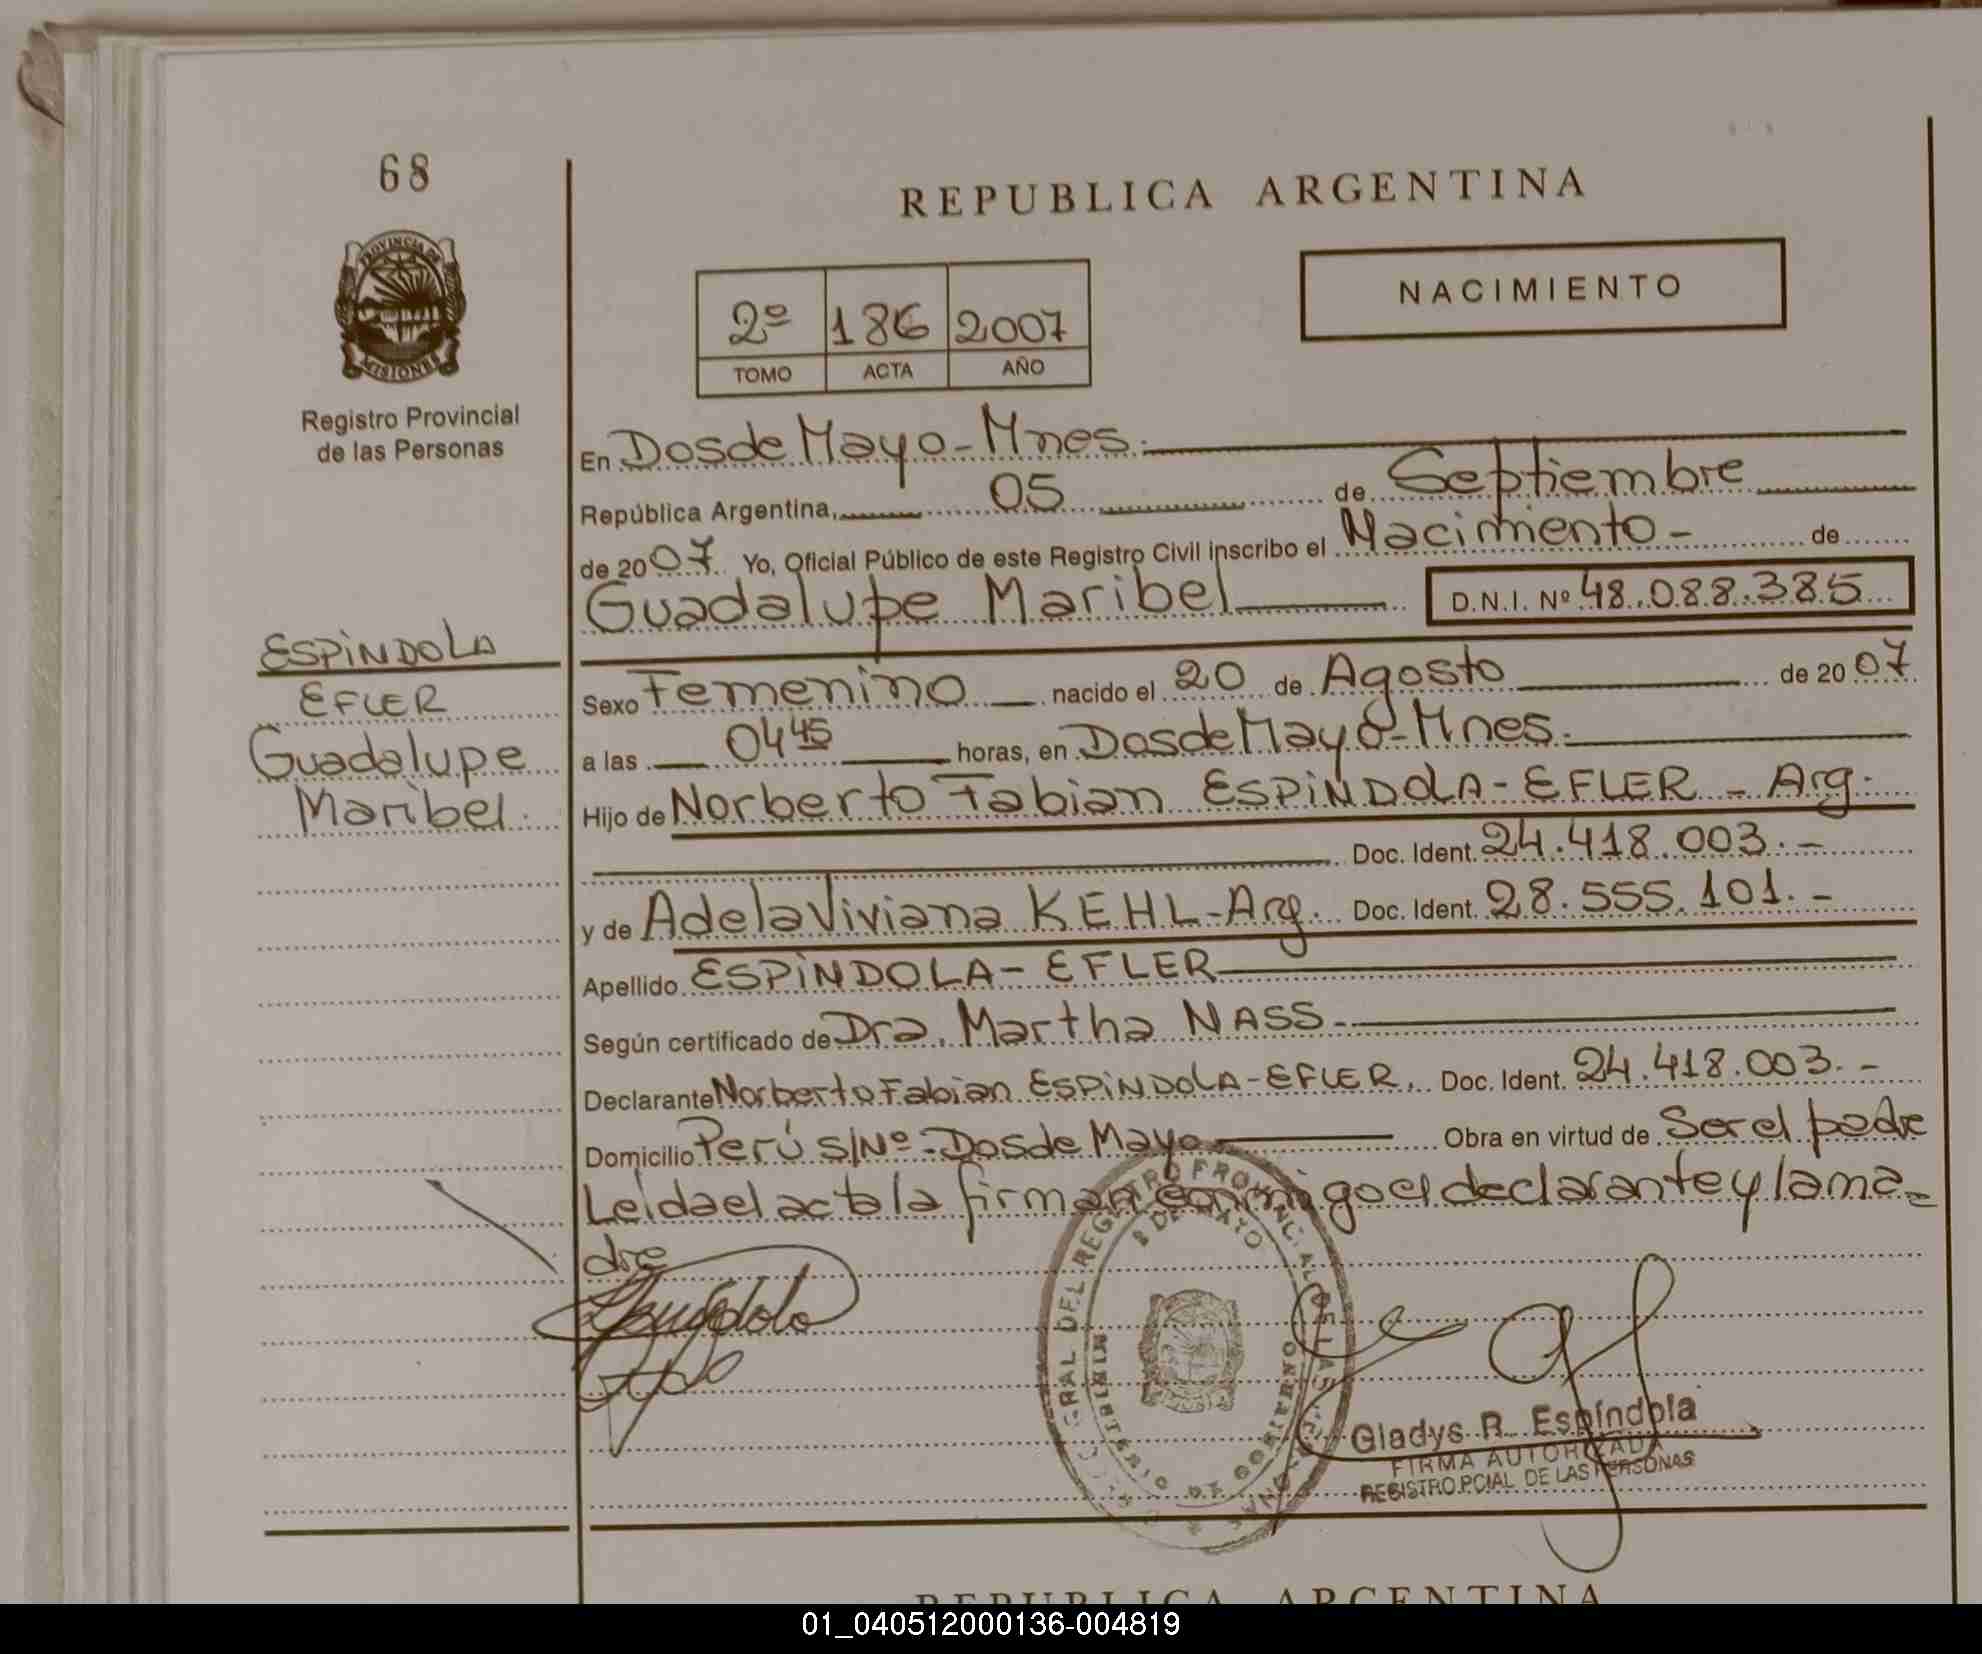 68
REPUBLICA ARGENTINA
PROVINCIA DE
MISIONES
NACIMIENTO
2º 186 2007
TOMO ACTA AÑO
Registro Provincial
de las Personas
En Dos de Mayo - Mnes.
República Argentina, 05 de Septiembre
de 2007 Yo, Oficial Público de este Registro Civil inscribo el Nacimiento - de
Guadalupe Maribel D.N.I. Nº 48.088.385
ESPINDOLA
EFLER
Guadalupe
Maribel.
Sexo Femenino nacido el 20 de Agosto de 2007
a las 04 45 horas, en Dos de Mayo - Mnes.
Hijo de Norberto Fabian ESPINDOLA - EFLER - Arg.
Doc. Ident. 24.418.003.-
y de Adela Viviana KEHL - Arg. Doc. Ident. 28.555.101.-
Apellido ESPINDOLA - EFLER
Según certificado de Dra. Martha NASS.
Declarante Norberto Fabian ESPINDOLA - EFLER. Doc. Ident. 24.418.003.-
Domicilio Perú S/Nº - Dos de Mayo Obra en virtud de Ser el padre
Leída el acta la firman conmigo el declarante y la ma=
dre
REGISTRO PROVINCIAL DE LAS
2 DE MAYO
MINISTERIO DE GOBIERNO
Gladys R. Espíndola
FIRMA AUTORIZADA
REGISTRO PCIAL DE LAS PERSONAS
REPUBLICA ARGENTINA
01_040512000136-004819